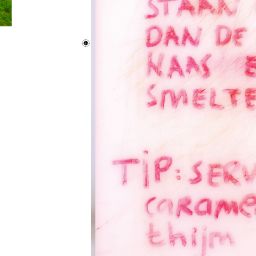 STAAN
DAN DE
KAAS
SMELTE
TIP: SERV
carame
thijm